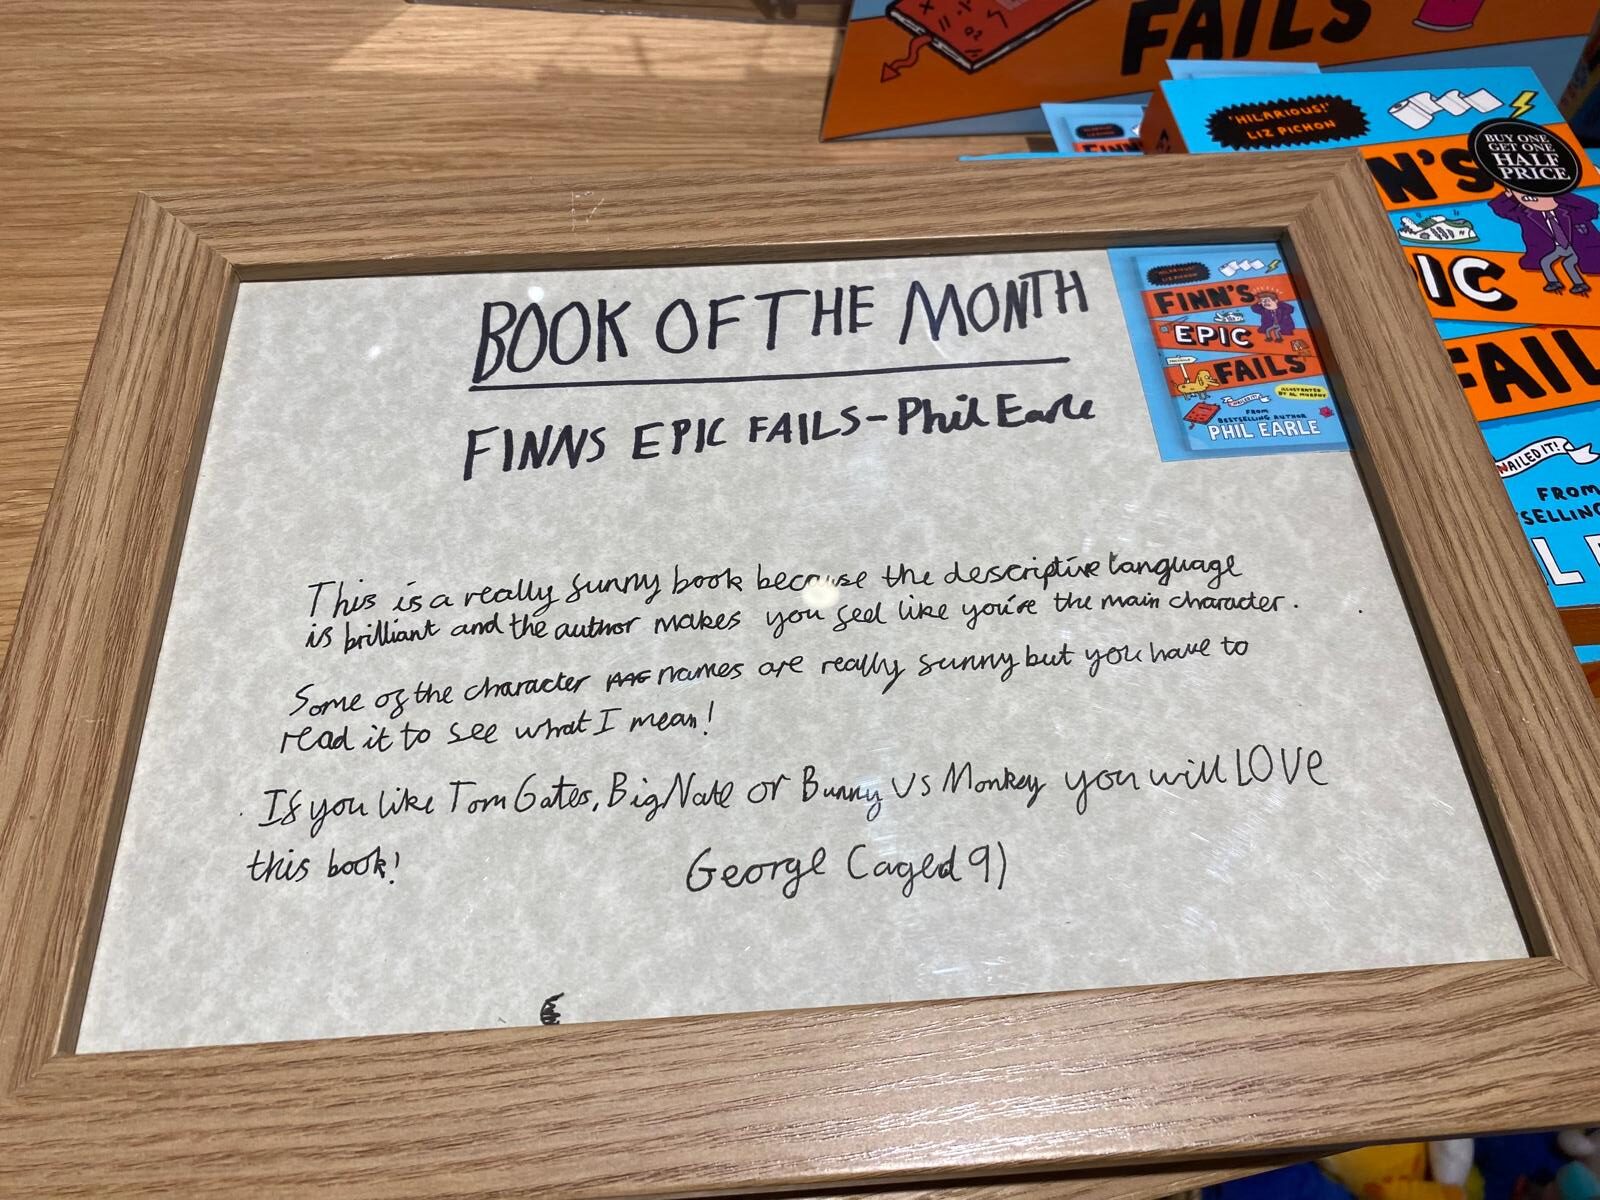 FAILS
'HILARIOUS!'
LIZ PICHON
BUY ONE
GET ONE
HALF
PRICE
N'S
IC
FAIL
NAILED IT!
FROM
SELLING
BOOK OF THE MONTH
FINNS EPIC FAILS-Phil Earle
'HILARIOUS!'
LIZ PICHON
FINN'S
EPIC
FAILS
ILLUSTRATED
BY AL MURPHY
NAILED IT!
FROM
BESTSELLING AUTHOR
PHIL EARLE
This is a really funny book because the descriptive language
is brilliant and the author makes you feel like you're the main character.
Some of the character names are really funny but you have to
read it to see what I mean!
If you like Tom Gates, Big Nate or Bunny vs Monkey you will LOVE
this book!
George (aged 9)